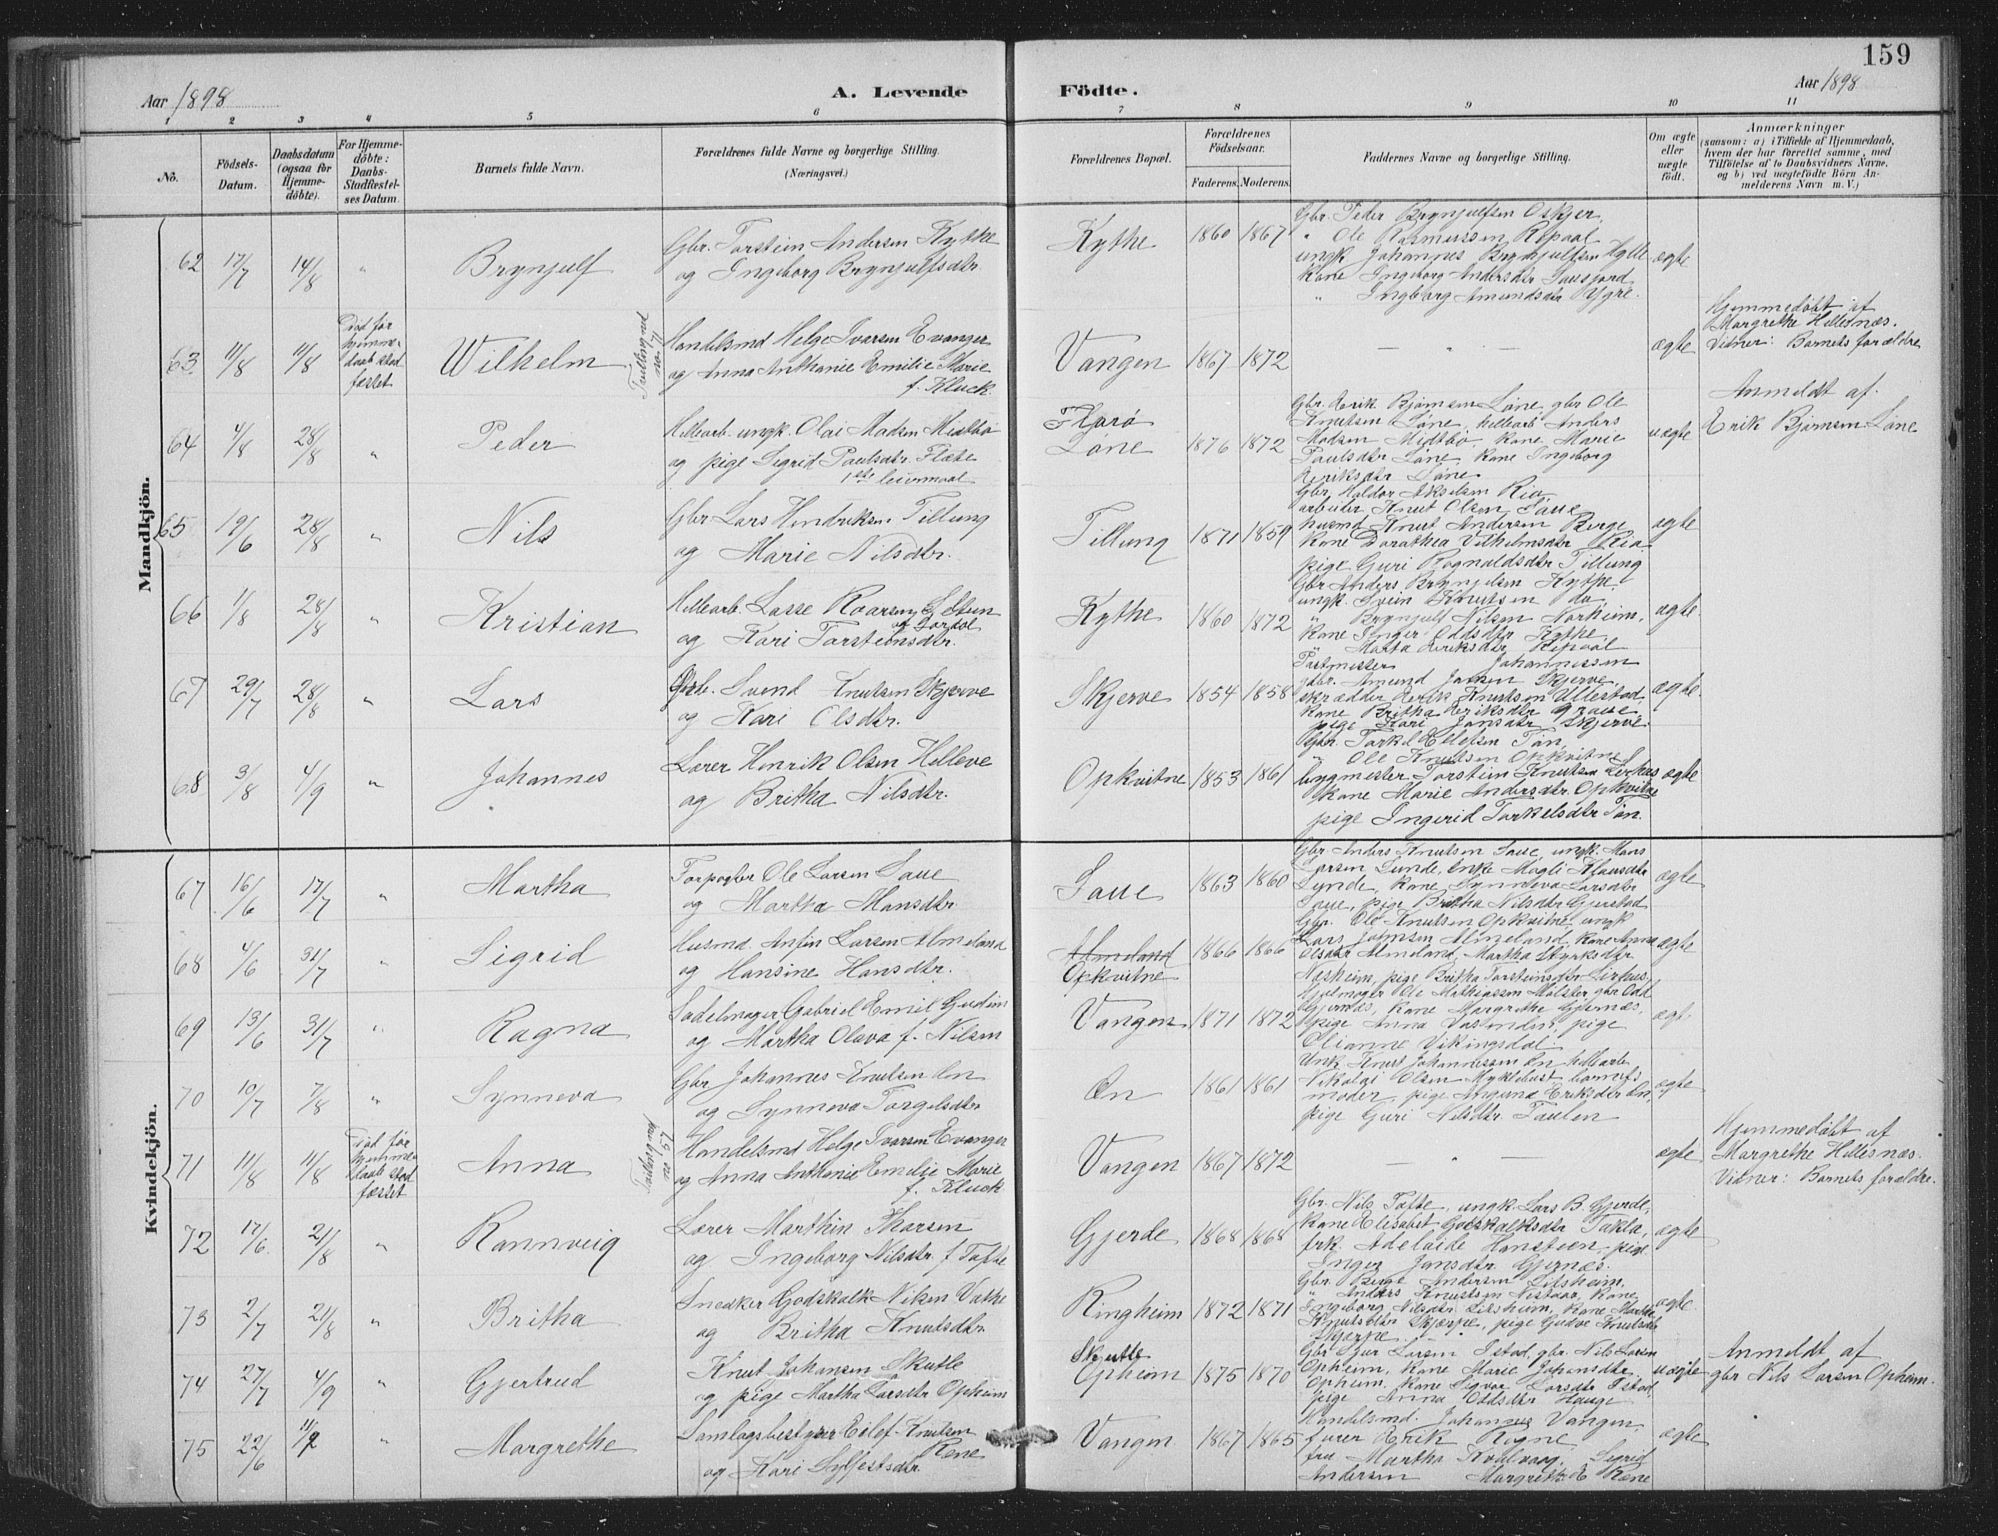 159
Aar 1898
A. Levende Födte.
Aar 1898
1 2 3 4 5 6 7 8 9 10 11
No.
Födsels-Datum.
Daabsdatum (ogsaa for Hjemme-döbte).
For Hjemme-döbte: Daabs-Stadfæstel-ses Datum.
Barnets fulde Navn.
Forældrenes fulde Navne og borgerlige Stilling.
(Næringsvei.)
Forældrenes Bopæl.
Forældrenes Födselsaar.
Faderens. Moderens.
Faddernes Navne og borgerlige Stilling.
Om ægte eller uægte födt.
Anmærkninger
(saasom: a) i Tilfælde af Hjemmedaab, hvem der har forrettet samme, med Tilföielse af to Daabsvidners Navne, og b) ved uægtefödte Börn An-melderens Navn m. V.)
Mandkjön.
62 17/7 14/8 " Brynjulf
Gbr. Torstein Andersen Kythe
og Ingeborg Brynjulfsdtr.
Kythe 1860 1867
Gbr. Peder Brynjulfsen Oskjer,
" Ole Rasmussen Repaal
ungk Johannes Brynjulfsen Hylle
Kone Ingeborg Andersdtr Sausjord
" Ingborg Amundsdtr Ygre.
ægte
63 11/8 11/8 Död før hjemme-daab stadfæstet
Wilhelm
Tvillingmd no 71
Handelsmd Helge Ivarsen Evanger
og Anna Anthanie Emilie Marie
f. Kluck.
Vangen 1867 1872
— " —
ægte
Hjemmedöbt af
Margrethe Hillesnæs.
Vidner: Barnets forældre
64 4/8 28/8 " Peder
Hellearb. ungk. Olai Madsen Midtbö
og pige Sigrid Paulsdtr. Flæte
1ste leiermaal
Florö
Löne 1876 1872
Gbr. Erik Björnsen Löne, gbr Ole
Knutsen Löne, hellearb Anders
Madsen Midtbö, Kone Marie
Paulsdtr Löne, Kone Ingeborg
Eriksdtr Löne
uægte
Anmeldt af.
Erik Björnsen Löne
65 19/6 28/8 " Nils
Gbr. Lars Hendriksen Tillung
og Marie Nilsdtr.
Tillung 1871 1859
Gbr. Haldor Akselsen Ria,
arbeider Knut Olsen Saue,
husmd Knut Andersen Berge
Kone Dorathea Vilhelmsdtr Ria
pige Guri Ragnaldsdtr Tillung
ægte
66 1/8 28/8 " Kristian
Hellearb. Lasse Roarsen
og Kari Torsteinsdtr.
Kythe 1860 1872
Gbr Anders Brynjulfsen Kythe,
ungk Svein Knutsen do
" Brynjulf Nilsen Norheim,
Kone Inger Oddsdtr Kythe
" Matta Eriksdtr Repaal
ægte
67 29/7 28/8 " Lars
Gbr. Svend Knutsen Skjerve
og Kari Olsdtr.
Skjerve 1854 1858
Postmester Johannessen
gbr. Amund Jansen Skjerve
skrædder Erik Knutsen Ullestad,
Kone Britha Eriksdtr Graue
pige Kari Jansdtr Skjerve.
ægte
68 3/8 4/9 " Johannes
Lærer Henrik Olsen Helleve
og Britha Nilsdtr.
Opkvitne 1853 1861
Gbr. Torkel Ellefsen Tön,
" Ole Knutsen Opkvitne
bygmester Torstein Knutsen Lirhus
Kone Marie Andersdtr Opkvitne
pige Ingerid Torkelsdtr Tön.
ægte
Kvindekjön.
67 16/6 17/7 " Martha
Torpagbr Ole Larsen Saue
og Martha Mansdtr.
Saue 1863 1860
Gbr. Anders Knutsen Saue, ungk. Mons
Larsen Lunde, enke Magli Klausdtr
Lunde, Kone Synneva Larsdtr
Saue, pige Britha Nilsdtr Gjerstad
ægte
68 4/6 31/7 " Sigrid
Husmd Anfin Larsen Almeland
og Hansine Hansdtr.
Almeland
Opkvitne 1866 1866
Gbr. Ole Knutsen Opkvitne, ungk
Lars Johnsen Almeland, Kone Anna
Olsdtr Almeland, Martha Styrksdtr
Nesheim, pige Britha Torsteinsdtr Lirhus
ægte
69 13/6 31/7 " Ragna
Sadelmager Gabriel Emil Gudim
og Martha Olava f. Nilsen
Vangen 1871 1872
Hjulmager Ole Mathiassen Mölster, gbr Odd
Gjernæs, Kone Margrethe Gjernæs,
pige Anna , pige
Olianne Vikingsdal
ægt.
70 10/7 7/8 " Synneva
Gbr Johannes Knutsen Ön
og Synneva Torgilsdtr
Ön 1861 1861
Unk Knut Johannessen Ön, hellearb.
Nikolai Olsen Myklebust, barnets
moder, pige Eriksdtr Ön,
pige Guri Nilsdtr Taulen
ægte
71 11/8 11/8 Död før hjemme-daab stadfæstet
Anna
Tvillingmd no 63
Handelsmd Helge Ivarsen Evanger
og Anna Anthanie Emilie Marie
f. Kluck
Vangen 1867 1872
— " —
ægte
Hjemmedöbt af
Margrethe Hillesnæs.
Vidner: Barnets forældre.
72 17/6 21/8 " Rannveig
Lærer Marthin Tharsen
og Ingeborg Nilsdtr f Tøfte
Gjerde 1868 1868
Gbr. Nils Tøfte, ungk. Lars B. Gjerde,
Kone Elisabet Godskalksdtr Takla,
frk. Adelaide Hansteen, pige
Inger Jansdtr Gjernæs.
ægte
73 2/7 21/8 " Britha
Snedker Godskalk Nilsen Væthe
og Britha Knutsdtr.
Ringheim 1872 1871
Gbr. Berge Andersen Lilsheim,
" Anders Knutsen Nestaas, Kone
Ingeborg Nilsdtr Lilsheim, Kone Martha
Knutsdtr Skjerpe, pige Gudve Knutsdtr
Skjerpe.
ægte
74 27/7 4/9 " Gjertrud
Knut Johansen Skutle
og pige Martha Larsdtr Opheim
Skutle
Opheim 1875 1870
Gbr Sjur Larsen Istad, gbr Nils Larsen
Opheim, Kone Marie Johansdtr
Opheim, Kone Larsdtr Istad,
pige Anna Oddsdtr Hauge
uægte
Anmeldt af
gbr Nils Larsen Opheim.
75 22/6 11/9 " Margrethe
Samlagsbestyrer Eilef Knutsen
Rene
og Kari Sylfestsdtr.
Vangen 1867 1865
Handelsmd. Johannes Vangen,
furer Erik Rogne,
fru Martha Kvalvaag, Sigrid
Andersen Margrethe E Rene
ægte